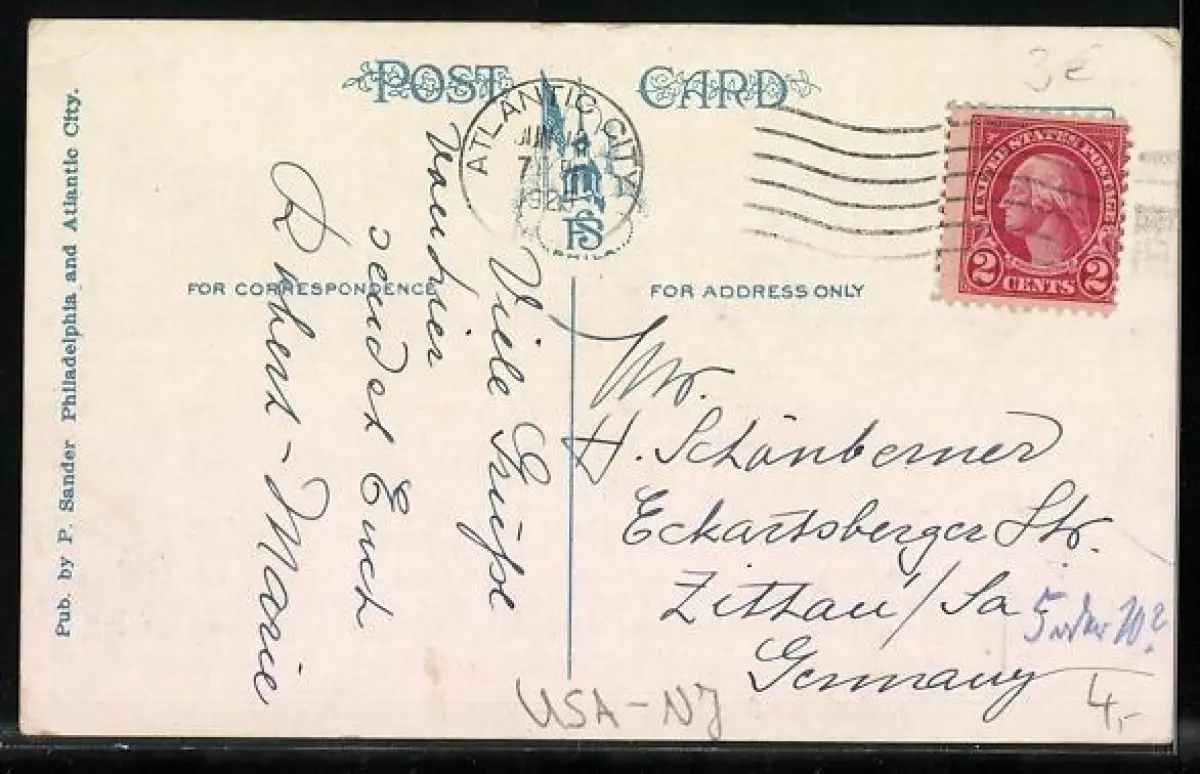 POST CARD
3 €
ATLANTIC CITY
JUN
7
192
PS
PHILA.
UNITED STATES POSTAGE
2 CENTS 2
FOR CORRESPONDENCE
FOR ADDRESS ONLY
Pub. by P. Sander Philadelphia and Atlantic City.
Viele Grüße
von hier
sendet Euch
Marie
Mr.
H. Schönberner
Eckartsberger Str.
Zittau/Sa
Germany
5 oder 10?
4,-
USA-NJ